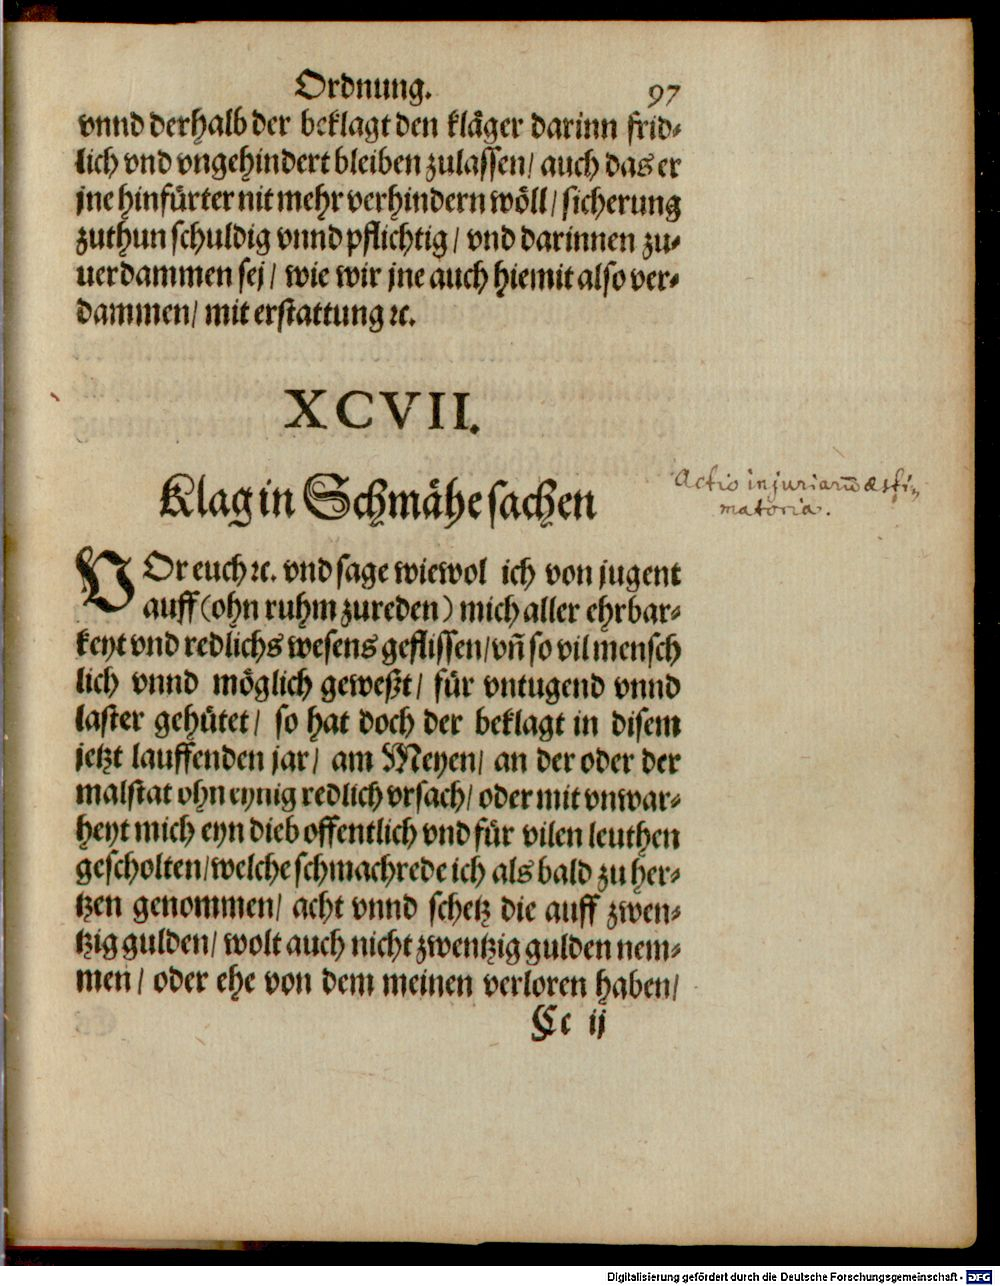 Ordnung. 97
vnnd derhalb der beklagt den kläger darinn frid⸗
lich vnd vngehindert bleiben zulassen/ auch das er
jne hinfürter nit mehr verhindern wöll/ sicherung
zuthun schuldig vnnd pflichtig/ vnd darinnen zu⸗
uerdammen sej/ wie wir jne auch hiemit also ver⸗
dammen/ mit erstattung ꝛc.
XCVII.
Klag in Schmähe sachen
Actio injuriarū æsti-
matoria.
VOr euch ꝛc. vnd sage wiewol ich von jugent
auff (ohn ruhm zureden) mich aller ehrbar⸗
keyt vnd redlichs wesens geflissen/ vñ so vil mensch
lich vnnd möglich geweßt/ für vntugend vnnd
laster gehütet/ so hat doch der beklagt in disem
jetzt lauffenden jar/ am Meyen/ an der oder der
malstat ohn eynig redlich vrsach/ oder mit vnwar⸗
heyt mich eyn dieb offentlich vnd für vilen leuthen
gescholten/ welche schmachrede ich als bald zu her⸗
tzen genommen/ acht vnnd schetz die auff zwen⸗
tzig gulden/ wolt auch nicht zwentzig gulden nem⸗
men/ oder ehe von dem meinen verloren haben/
Cc ij
Digitalisierung gefördert durch die Deutsche Forschungsgemeinschaft - DFG